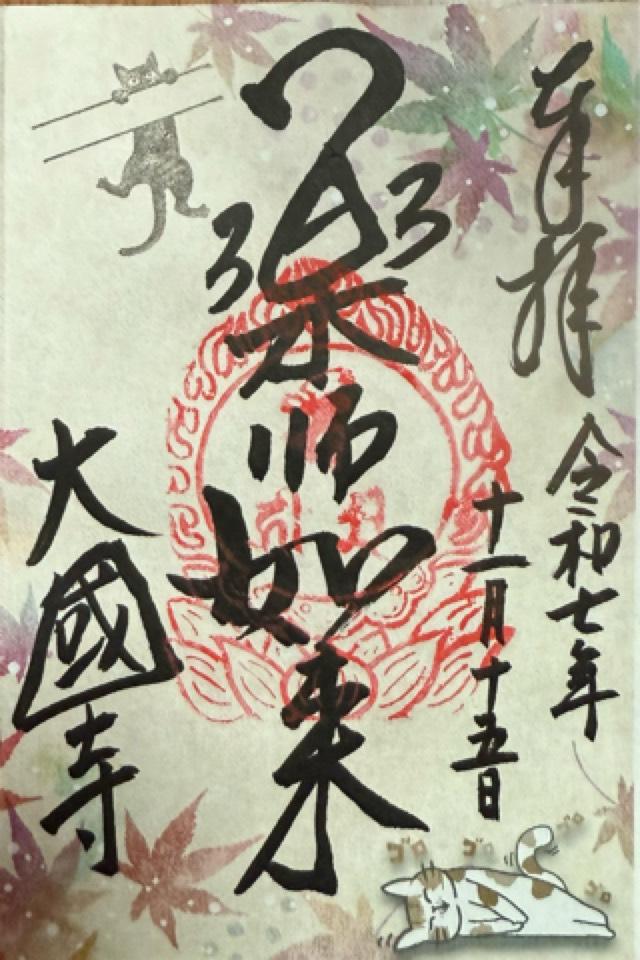 奉拝
令和七年
十一月十五日
薬師如来
大國寺
ゴロ
ゴロ
ゴロ
ゴロ